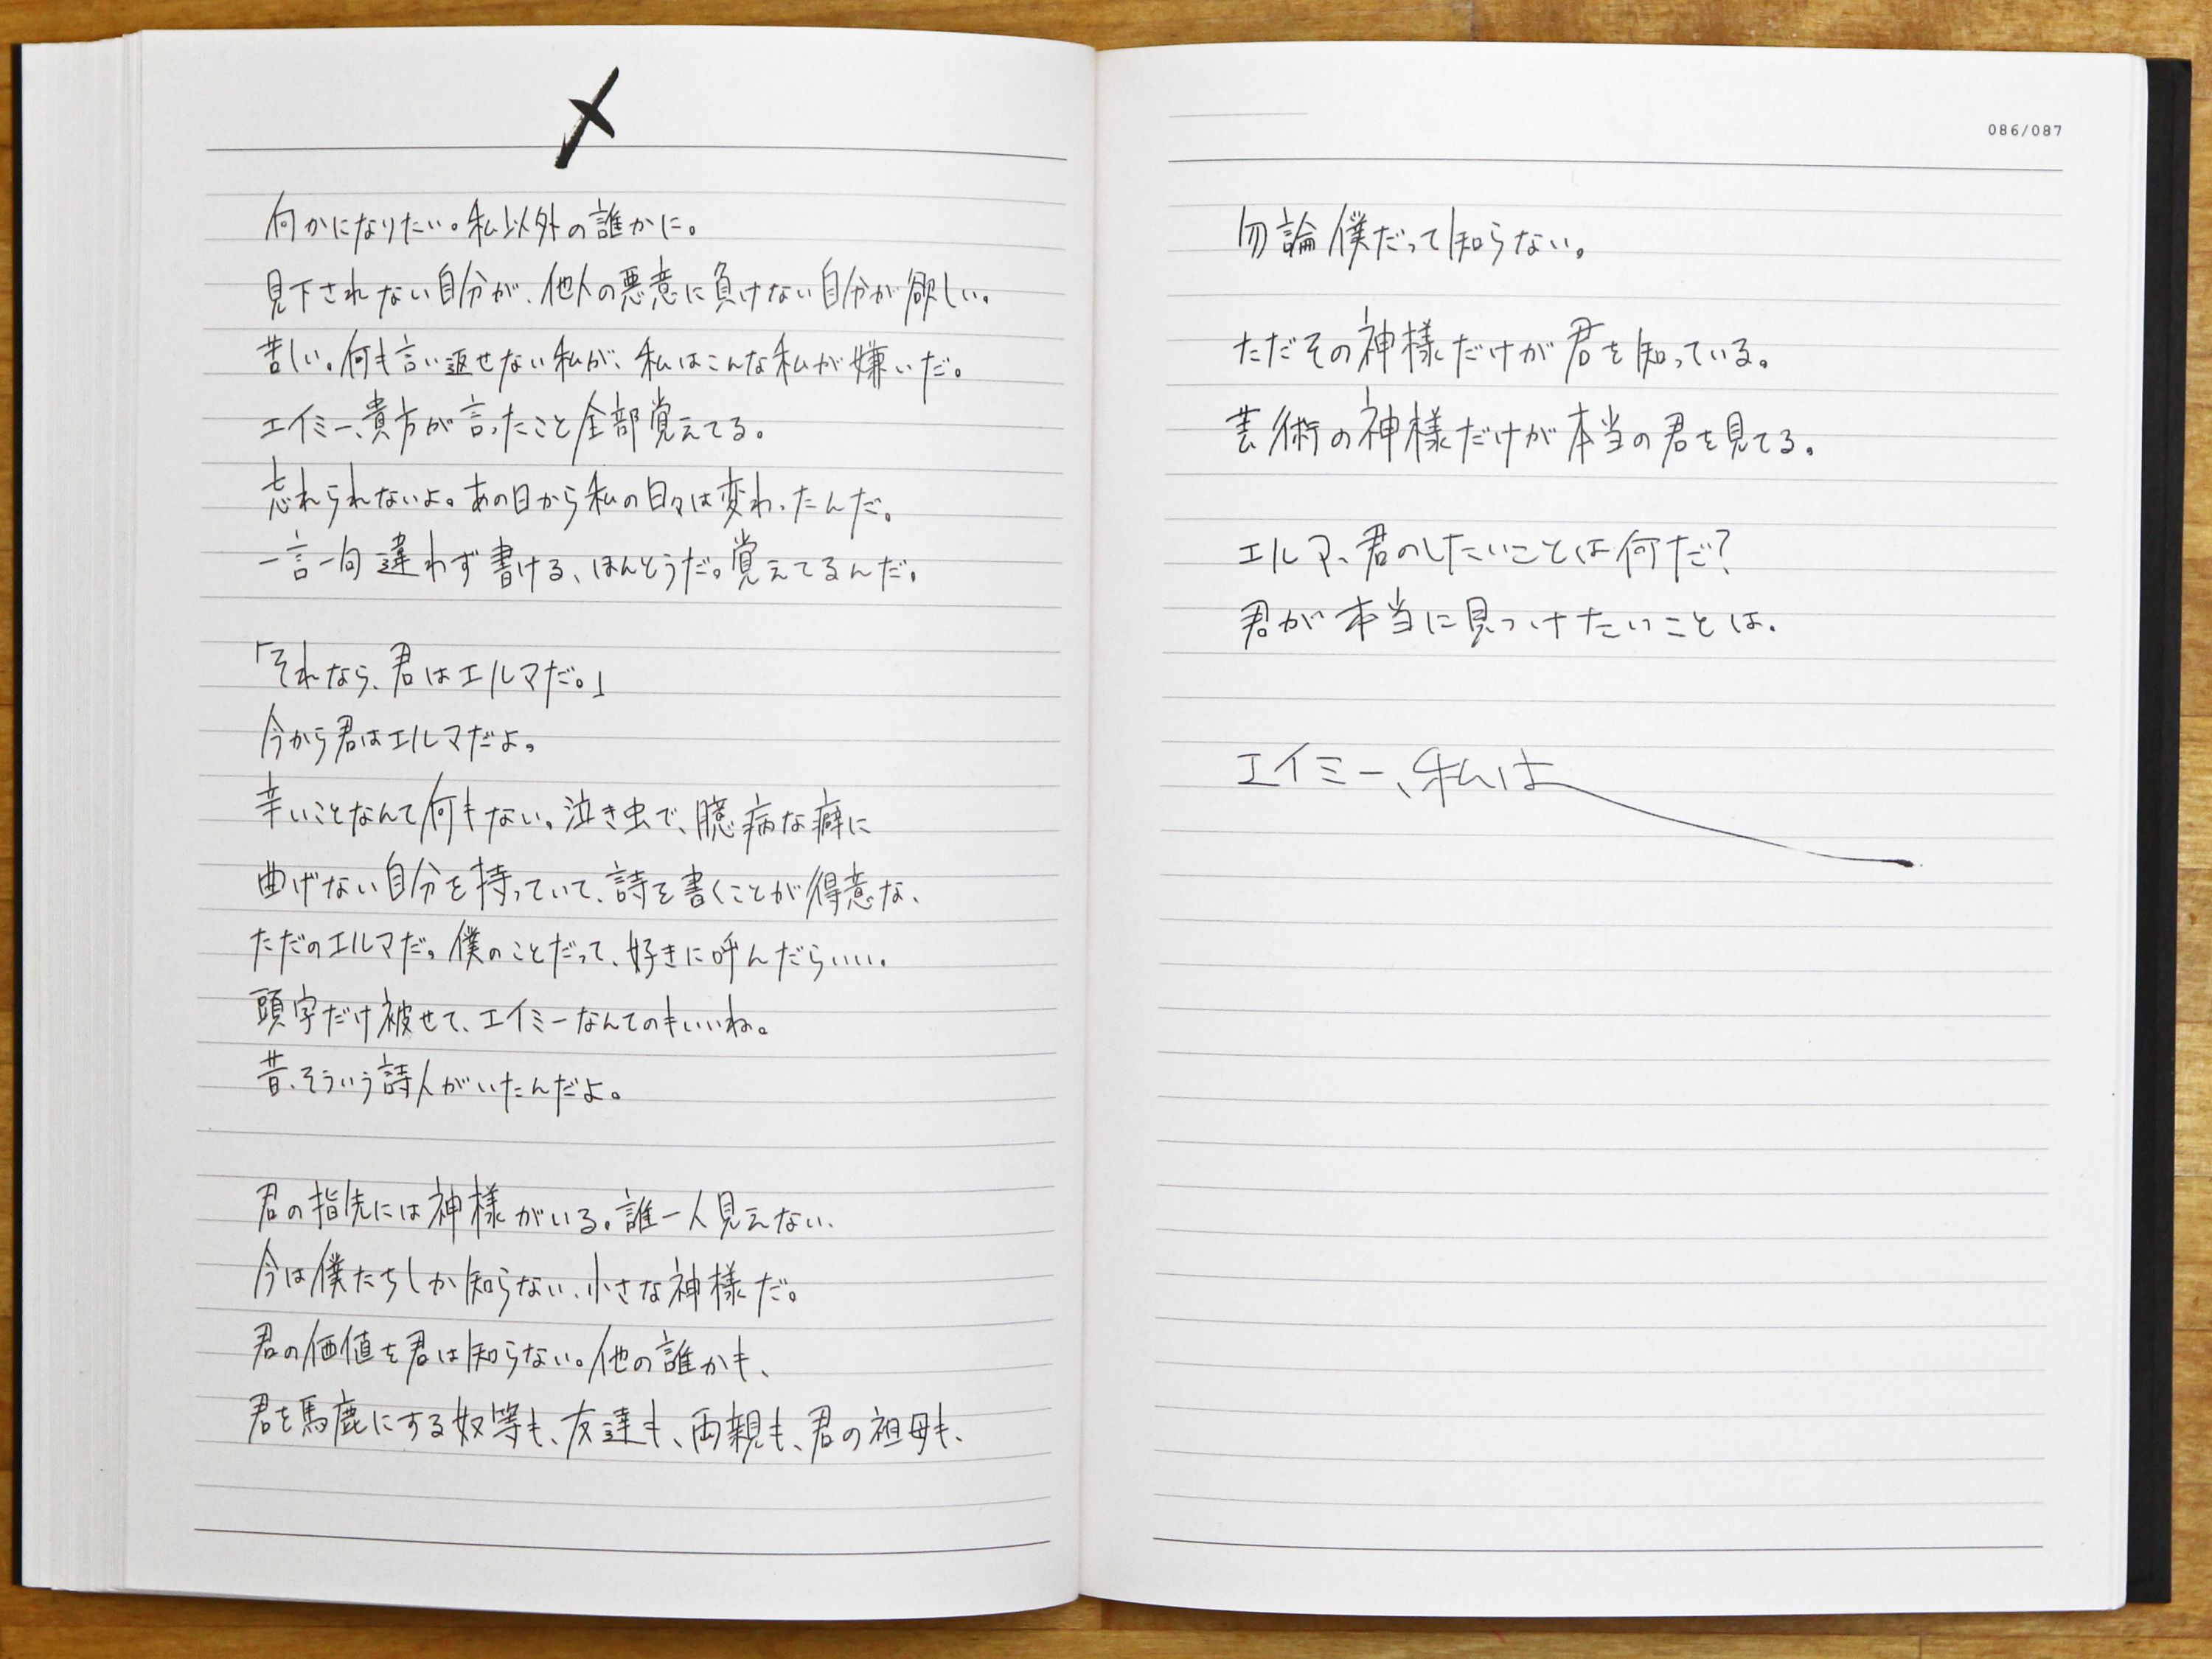 メ
086/087
何かになりたい。私以外の誰かに。
見下されない自分が、他人の悪意に負けない自分が欲しい。
苦しい。何も言い返せない私が、私はこんな私が嫌いだ。
エイミー、貴方が言ったこと全部覚えてる。
忘れられないよ。あの日から私の日々は変わったんだ。
一言一句違わず書ける、ほんとうだ。覚えてるんだ。
「それなら、君はエルマだ。」
今から君はエルマだよ。
辛いことなんて何もない。泣き虫で、臆病な癖に
曲げない自分を持っていて、詩を書くことが得意な、
ただのエルマだ。僕のことだって、好きに呼んだらいい。
頭字だけ被せて、エイミーなんてのもいいね。
昔、そういう詩人がいたんだよ。
君の指先には神様がいる。誰一人見えない、
今は僕たちしか知らない、小さな神様だ。
君の価値を君は知らない。他の誰かも、
君を馬鹿にする奴等も、友達も、両親も、君の祖母も、
勿論僕だって知らない。
ただその神様だけが君を知っている。
芸術の神様だけが本当の君を見てる。
エルマ、君のしたいことは何だ？
君が本当に見つけたいことは、
エイミー、私は